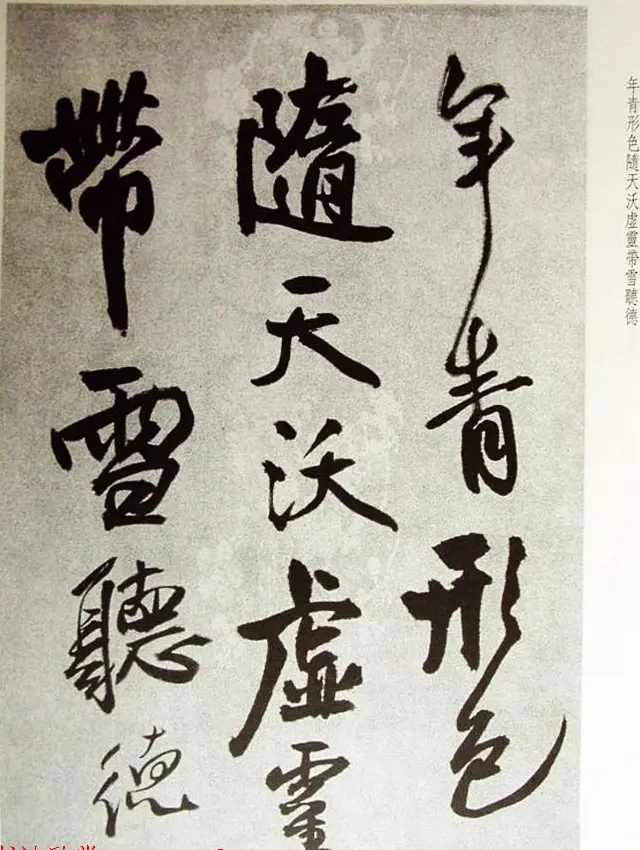 年青形色
隨天沃虛靈
帶雪聽德
年青形色隨天沃虛靈帶雪聽德